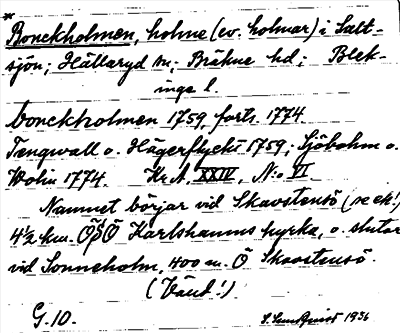 * Bonckholmen, holme (ev. holmar) i Salt-
sjön; Hällaryd sn; Bräkne hd; Blek-
inge l.
bonckholmen 1759, forts. 1774.
Tengwall o. Hägerflycht 1759; Sjöbohm o.
Wolin 1774. Kr. A. XXIV, N:o VI.
Namnet börjar vid Skavstensö (se ek!)
4½ km. ÖSÖ Karlshamns kyrka, o. slutar
vid Sonneholm, 400 m. Ö Skavstensö.
(Vänd!)
G. 10. S. Sundquist 1936